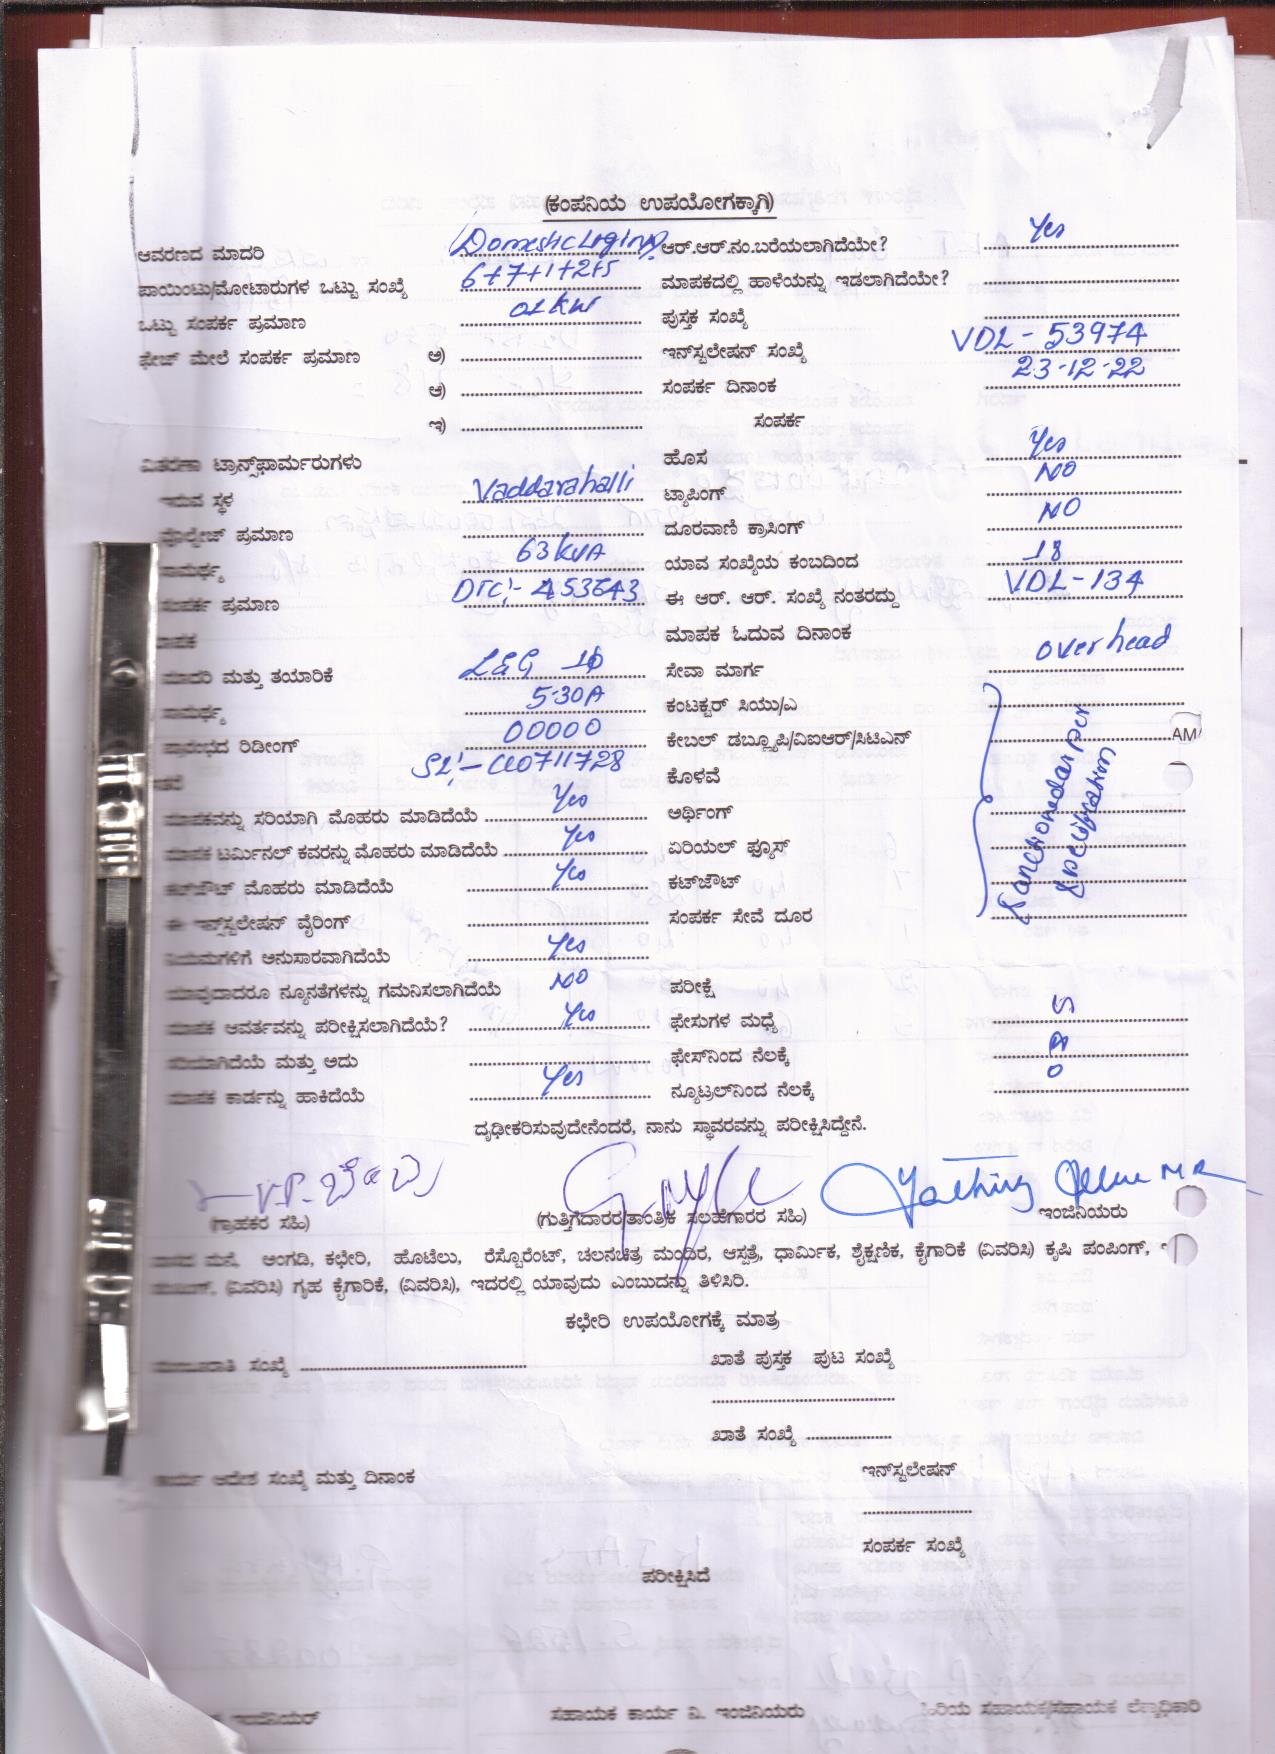 (ಕಂಪನಿಯ ಉಪಯೋಗಕ್ಕಾಗಿ)
ಆವರಣದ ಮಾದರಿ Domestic ಆರ್.ಆರ್.ನಂ.ಬರೆಯಲಾಗಿದೆಯೇ? Yes
ಪಾಯಿಂಟು/ಮೋಟಾರುಗಳ ಒಟ್ಟು ಸಂಖ್ಯೆ 6+7+1+2+5 ಮಾಪಕದಲ್ಲಿ ಹಾಳೆಯನ್ನು ಇಡಲಾಗಿದೆಯೇ?
ಒಟ್ಟು ಸಂಪರ್ಕ ಪ್ರಮಾಣ 01kw ಪುಸ್ತಕ ಸಂಖ್ಯೆ
ಫೇಜ್ ಮೇಲೆ ಸಂಪರ್ಕ ಪ್ರಮಾಣ ಅ) ಇನ್‌ಸ್ಟಲೇಷನ್ ಸಂಖ್ಯೆ VDL-53974
ಆ) ಸಂಪರ್ಕ ದಿನಾಂಕ 23-12-22
ಇ) ಸಂಪರ್ಕ
ವಿತರಣಾ ಟ್ರಾನ್ಸ್‌ಫಾರ್ಮರುಗಳು ಹೊಸ Yes
ಇರುವ ಸ್ಥಳ Vaddarahalli ಟ್ಯಾಪಿಂಗ್ NO
ವೋಲ್ಟೇಜ್ ಪ್ರಮಾಣ ದೂರವಾಣಿ ಕ್ರಾಸಿಂಗ್ NO
ಸಾಮರ್ಥ್ಯ 63kVA ಯಾವ ಸಂಖ್ಯೆಯ ಕಂಬದಿಂದ 18
ಸಂಪರ್ಕ ಪ್ರಮಾಣ DTC:- 453643 ಈ ಆರ್. ಆರ್. ಸಂಖ್ಯೆ ನಂತರದ್ದು VDL-134
ಮಾಪಕ ಓದುವ ದಿನಾಂಕ
ಮಾದರಿ ಮತ್ತು ತಯಾರಿಕೆ L&G 1ф ಸೇವಾ ಮಾರ್ಗ overhead
ಸಾಮರ್ಥ್ಯ 5-30A ಕಂಟಕ್ಟರ್ ಸಿಯು/ಎ
ಪ್ರಾರಂಭದ ರಿಡೀಂಗ್ 00000 ಕೇಬಲ್ ಡಬ್ಲ್ಯೂಪಿ/ವಿಐಆರ್/ಸಿಟಿಎನ್ AM
SL:- 0711728 ಕೊಳವೆ
ಮಾಪಕವನ್ನು ಸರಿಯಾಗಿ ಮೊಹರು ಮಾಡಿದೆಯೆ Yes ಅರ್ಥಿಂಗ್
ಮಾಪಕ ಟರ್ಮಿನಲ್ ಕವರನ್ನು ಮೊಹರು ಮಾಡಿದೆಯೆ Yes ಏರಿಯಲ್ ಫ್ಯೂಸ್
ಕಟ್‌ಔಟ್ ಮೊಹರು ಮಾಡಿದೆಯೆ Yes ಕಟ್‌ಔಟ್
ಈ ಇನ್‌ಸ್ಟಲೇಷನ್ ವೈರಿಂಗ್ ಸಂಪರ್ಕ ಸೇವೆ ದೂರ
ನಿಯಮಗಳಿಗೆ ಅನುಸಾರವಾಗಿದೆಯೆ Yes
ಯಾವುದಾದರೂ ನ್ಯೂನತೆಗಳನ್ನು ಗಮನಿಸಲಾಗಿದೆಯೆ NO ಪರೀಕ್ಷೆ
ಮಾಪಕ ಆವರ್ತವನ್ನು ಪರೀಕ್ಷಿಸಲಾಗಿದೆಯೆ? Yes ಫೇಸುಗಳ ಮಧ್ಯೆ
ಸರಿಯಾಗಿದೆಯೆ ಮತ್ತು ಅದು ಫೇಸ್‌ನಿಂದ ನೆಲಕ್ಕೆ
ಮಾಪಕ ಕಾರ್ಡನ್ನು ಹಾಕಿದೆಯೆ Yes ನ್ಯೂಟ್ರಲ್‌ನಿಂದ ನೆಲಕ್ಕೆ
ದೃಢೀಕರಿಸುವುದೇನೆಂದರೆ, ನಾನು ಸ್ಥಾವರವನ್ನು ಪರೀಕ್ಷಿಸಿದ್ದೇನೆ.
(ಗ್ರಾಹಕರ ಸಹಿ) (ಗುತ್ತಿಗೆದಾರರ/ತಾಂತ್ರಿಕ ಸಲಹೆಗಾರರ ಸಹಿ) ಇಂಜಿನಿಯರು
ಮನೆ, ಅಂಗಡಿ, ಕಛೇರಿ, ಹೊಟೆಲು, ರೆಸ್ಟೊರೆಂಟ್, ಚಲನಚಿತ್ರ ಮಂದಿರ, ಆಸ್ಪತ್ರೆ, ಧಾರ್ಮಿಕ, ಶೈಕ್ಷಣಿಕ, ಕೈಗಾರಿಕೆ (ವಿವರಿಸಿ) ಕೃಷಿ ಪಂಪಿಂಗ್,
(ವಿವರಿಸಿ) ಗೃಹ ಕೈಗಾರಿಕೆ, (ವಿವರಿಸಿ), ಇದರಲ್ಲಿ ಯಾವುದು ಎಂಬುದನ್ನು ತಿಳಿಸಿರಿ.
ಕಛೇರಿ ಉಪಯೋಗಕ್ಕೆ ಮಾತ್ರ
ಮಂಜೂರಾತಿ ಸಂಖ್ಯೆ ಖಾತೆ ಪುಸ್ತಕ ಪುಟ ಸಂಖ್ಯೆ
ಖಾತೆ ಸಂಖ್ಯೆ
ಕಾರ್ಯ ಆದೇಶ ಸಂಖ್ಯೆ ಮತ್ತು ದಿನಾಂಕ ಇನ್‌ಸ್ಟಲೇಷನ್
ಸಂಪರ್ಕ ಸಂಖ್ಯೆ
ಪರೀಕ್ಷಿಸಿದೆ
ಇಂಜಿನಿಯರ್ ಸಹಾಯಕ ಕಾರ್ಯ ನಿ. ಇಂಜಿನಿಯರು ಹಿರಿಯ ಸಹಾಯಕ/ಸಹಾಯಕ ಲೆಕ್ಕಾಧಿಕಾರಿ